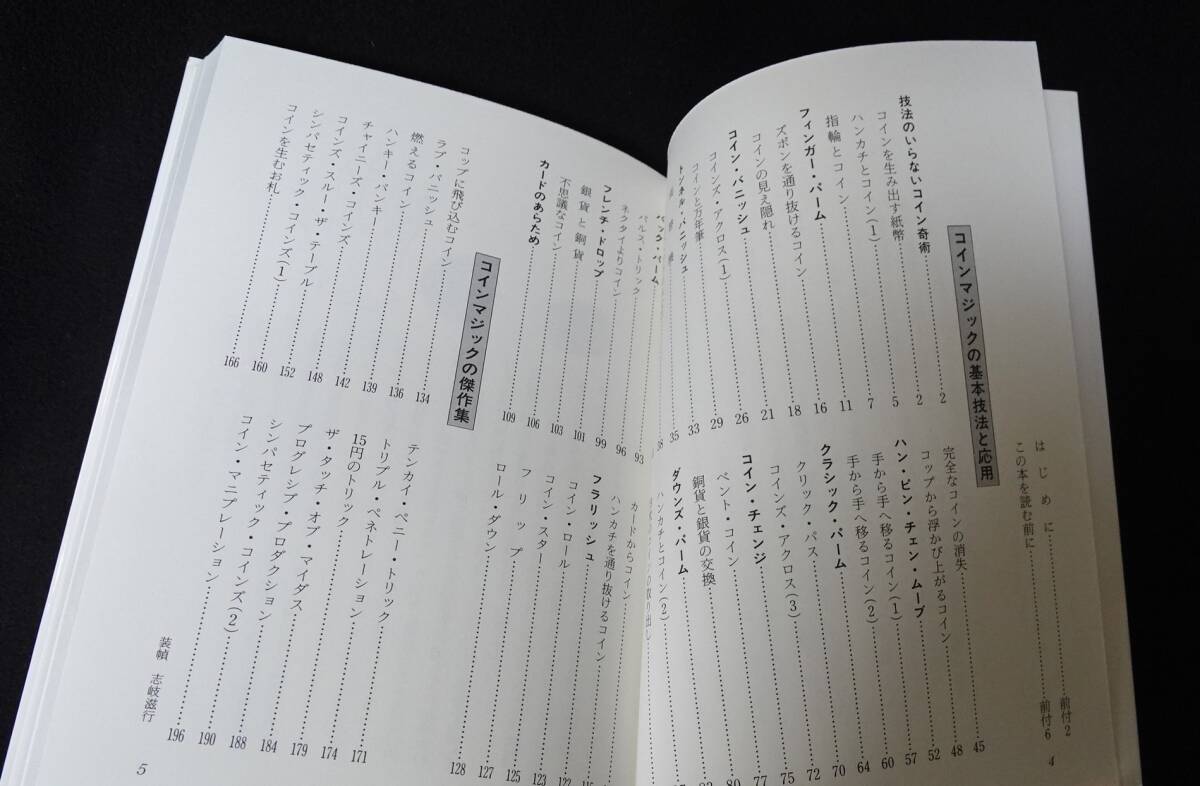 はじめに 前付2
この本を読む前に 前付6
コインマジックの基本技法と応用
技法のいらないコイン奇術 2
コインを生み出す紙幣 2
ハンカチとコイン(1) 5
指輪とコイン 7
フィンガー・パーム 11
ズボンを通り抜けるコイン 16
コインの見え隠れ 18
コイン・バニッシュ 21
コインズ・アクロス(1) 26
コインと万年筆 29
トンネル・バニッシュ 33
35
38
完全なコインの消失 45
コップから浮かび上がるコイン 48
ハン・ピン・チェン・ムーブ 52
手から手へ移るコイン(1) 57
手から手へ移るコイン(2) 60
クラシック・パーム 64
クリック・パス 70
コインズ・アクロス(3) 72
コイン・チェンジ 75
ベント・コイン 77
銅貨と銀貨の交換 80
ダウンズ・パーム
ハンカチとコイン(2)
の取り出し
4
バック・パーム 93
パルス・トリック 96
ネクタイよりコイン 99
フレンチ・ドロップ 101
銀貨と銅貨 103
不思議なコイン 106
カードのあらため 109
カードからコイン
ハンカチを通り抜けるコイン
フラリッシュ 122
コイン・ロール 123
コイン・スター 125
フリップ 127
ロール・ダウン 128
コインマジックの傑作集
コップに飛び込むコイン 134
ラブ・バニッシュ 136
燃えるコイン 139
ハンキー・パンキー 142
チャイニーズ・コインズ 148
コインズ・スルー・ザ・テーブル 152
シンパセティック・コインズ(1) 160
コインを生むお札 166
テンカイ・ペニー・トリック 171
トリプル・ペネトレーション 174
15円のトリック 179
ザ・タッチ・オブ・マイダス 184
プログレシブ・プロダクション 188
シンパセティック・コインズ(2) 190
コイン・マニプレーション 196
装幀 志岐滋行
5